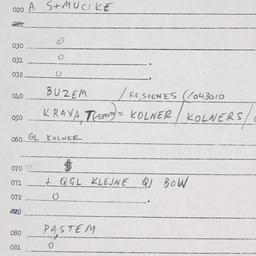 020 A STMUCIKE
030 0
031 0
032 0
040 BUZEM / KE,STENES (/043010
050 KRAVA, = KOLNER / KOLNERS /
060 GL KOLNER
070 $
071 + QGL KLEJNE QJ BOW
072 0
080 PASTEM
081 0